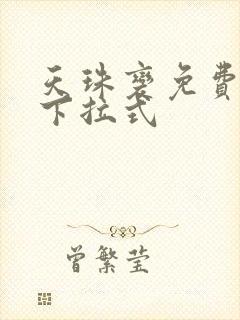 天珠变免費
下拉式
曾繁莹